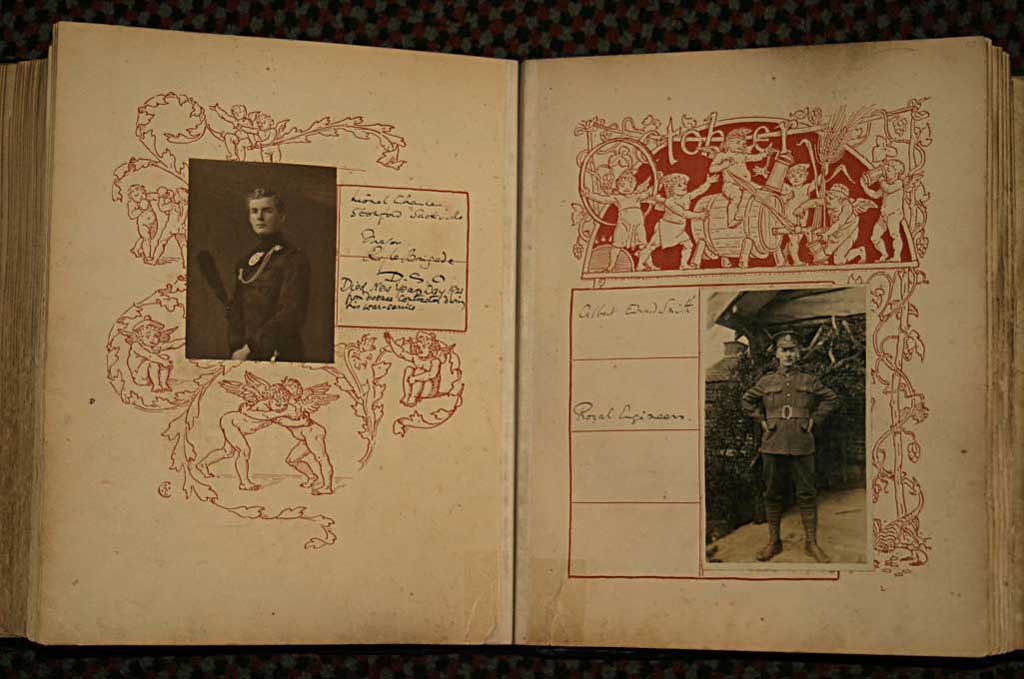 Lionel Charles
Stopford Sackville
Major
Rifle Brigade
D.S.O
Died New Years Day 1921
from disease contracted during
his war-service
October
Albert Edward Smith
Royal Engineers